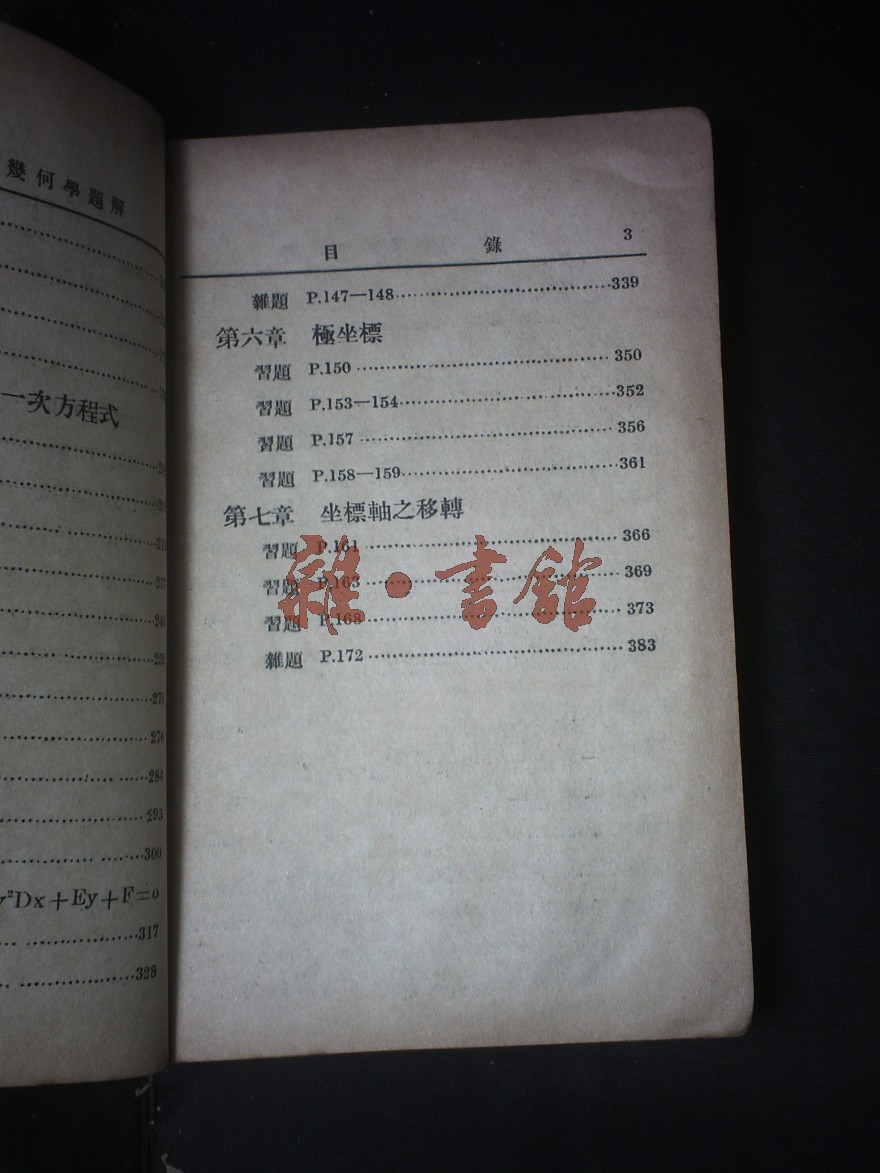 幾何學題解
一次方程式
276
284
295
300
y²Dx+Ey+F=o
317
328
目 錄 3
雜題 P.147—148 339
第六章 極坐標
習題 P.150 350
習題 P.153—154 352
習題 P.157 356
習題 P.158—159 361
第七章 坐標軸之移轉
習題 P.161 366
習題 P.163 369
習題 P.168 373
雜題 P.172 383
雜·書館